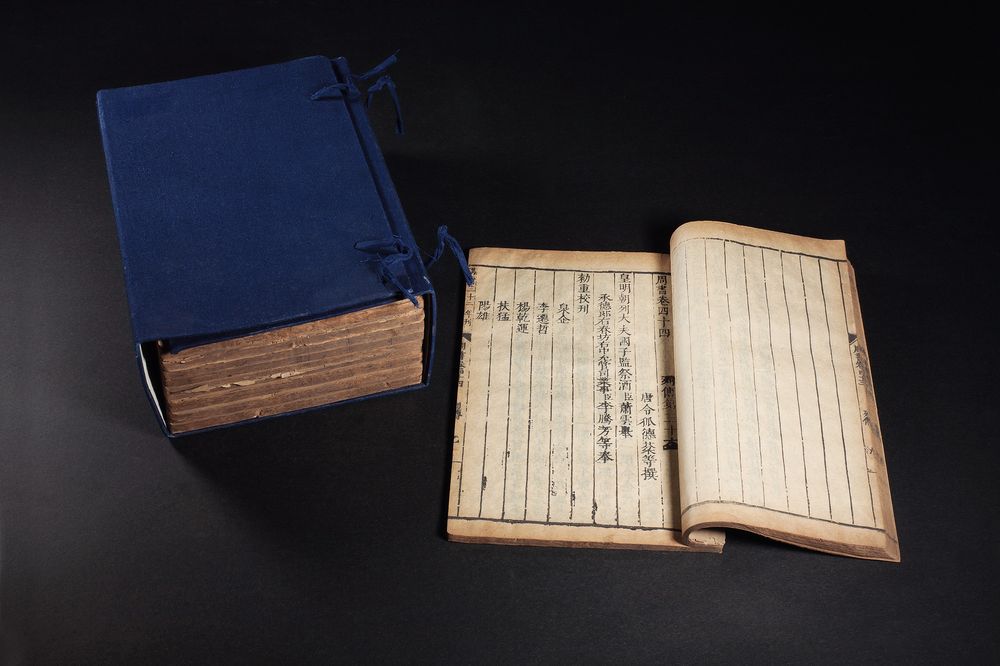 周書卷四十四 列傳第三十六
唐令狐德棻等撰
皇明朝列大夫國子監祭酒臣蕭雲舉
承德郎右春坊右中允管司業事臣李騰芳等奉
勑重校刋
泉企
李遷哲
楊乾運
扶猛
陽雄